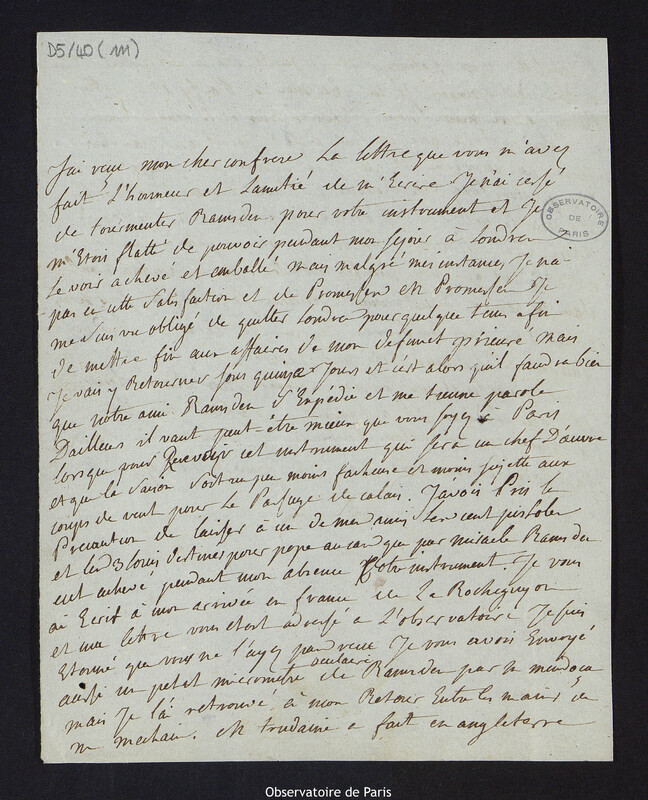 D5/40 (111)
J'ai recu mon cher confrere La lettre que vous m'avez
fait L'honneur et Lamitié de m'Ecrire Je n'ai cessé
de tourmenter Ramsden pour votre instrument et Je
OBSERVATOIRE DE PARIS
m'Etois flatté de pouvoir pendant mon sejour à Londres
Le voir achevé et emballé mais malgré mes instances, Je n'ai
pas eu cette satisfaction et de Promesses en Promesses Je
me suis vu obligé de quitter Londres pour quelque tems afin
de mettre fin aux affaires de mon defunct prieuré mais
Je vais y Retourner sous quinze Jours et c'est alors qu'il faudra bien
que notre ami Ramsden s'Expédie et me tienne parole
Dailleurs il vaut peut-etre mieux que vous soyez à Paris
lorsque pour Recevoir cet instrument qui sera un chef D'oeuvre
et que la saison soit un peu moins facheuse et moins sujette aux
coups de vent pour Le Passage de calais. J'avois Pris la
Précaution de laisser à un de mes amis Les cent pistoles
et les 3 louis destinés pour au cas que par miracle Ramsden
eut achevé pendant mon absence Votre instrument. Je vous
ai Ecrit à mon arrivée en france de La Rocheguyon
et ma lettre vous etoit adressé à L'observatoire Je suis
Etonné que vous ne l'ayez pas recue Je vous avois Envoyé
aussi un petit micrometre oculaire de Ramsden par m mendoca
mais Je l'ai retrouvé à mon Retour Entre les mains de
m mechain. M trudaine a fait en angleterre
Observatoire de Paris